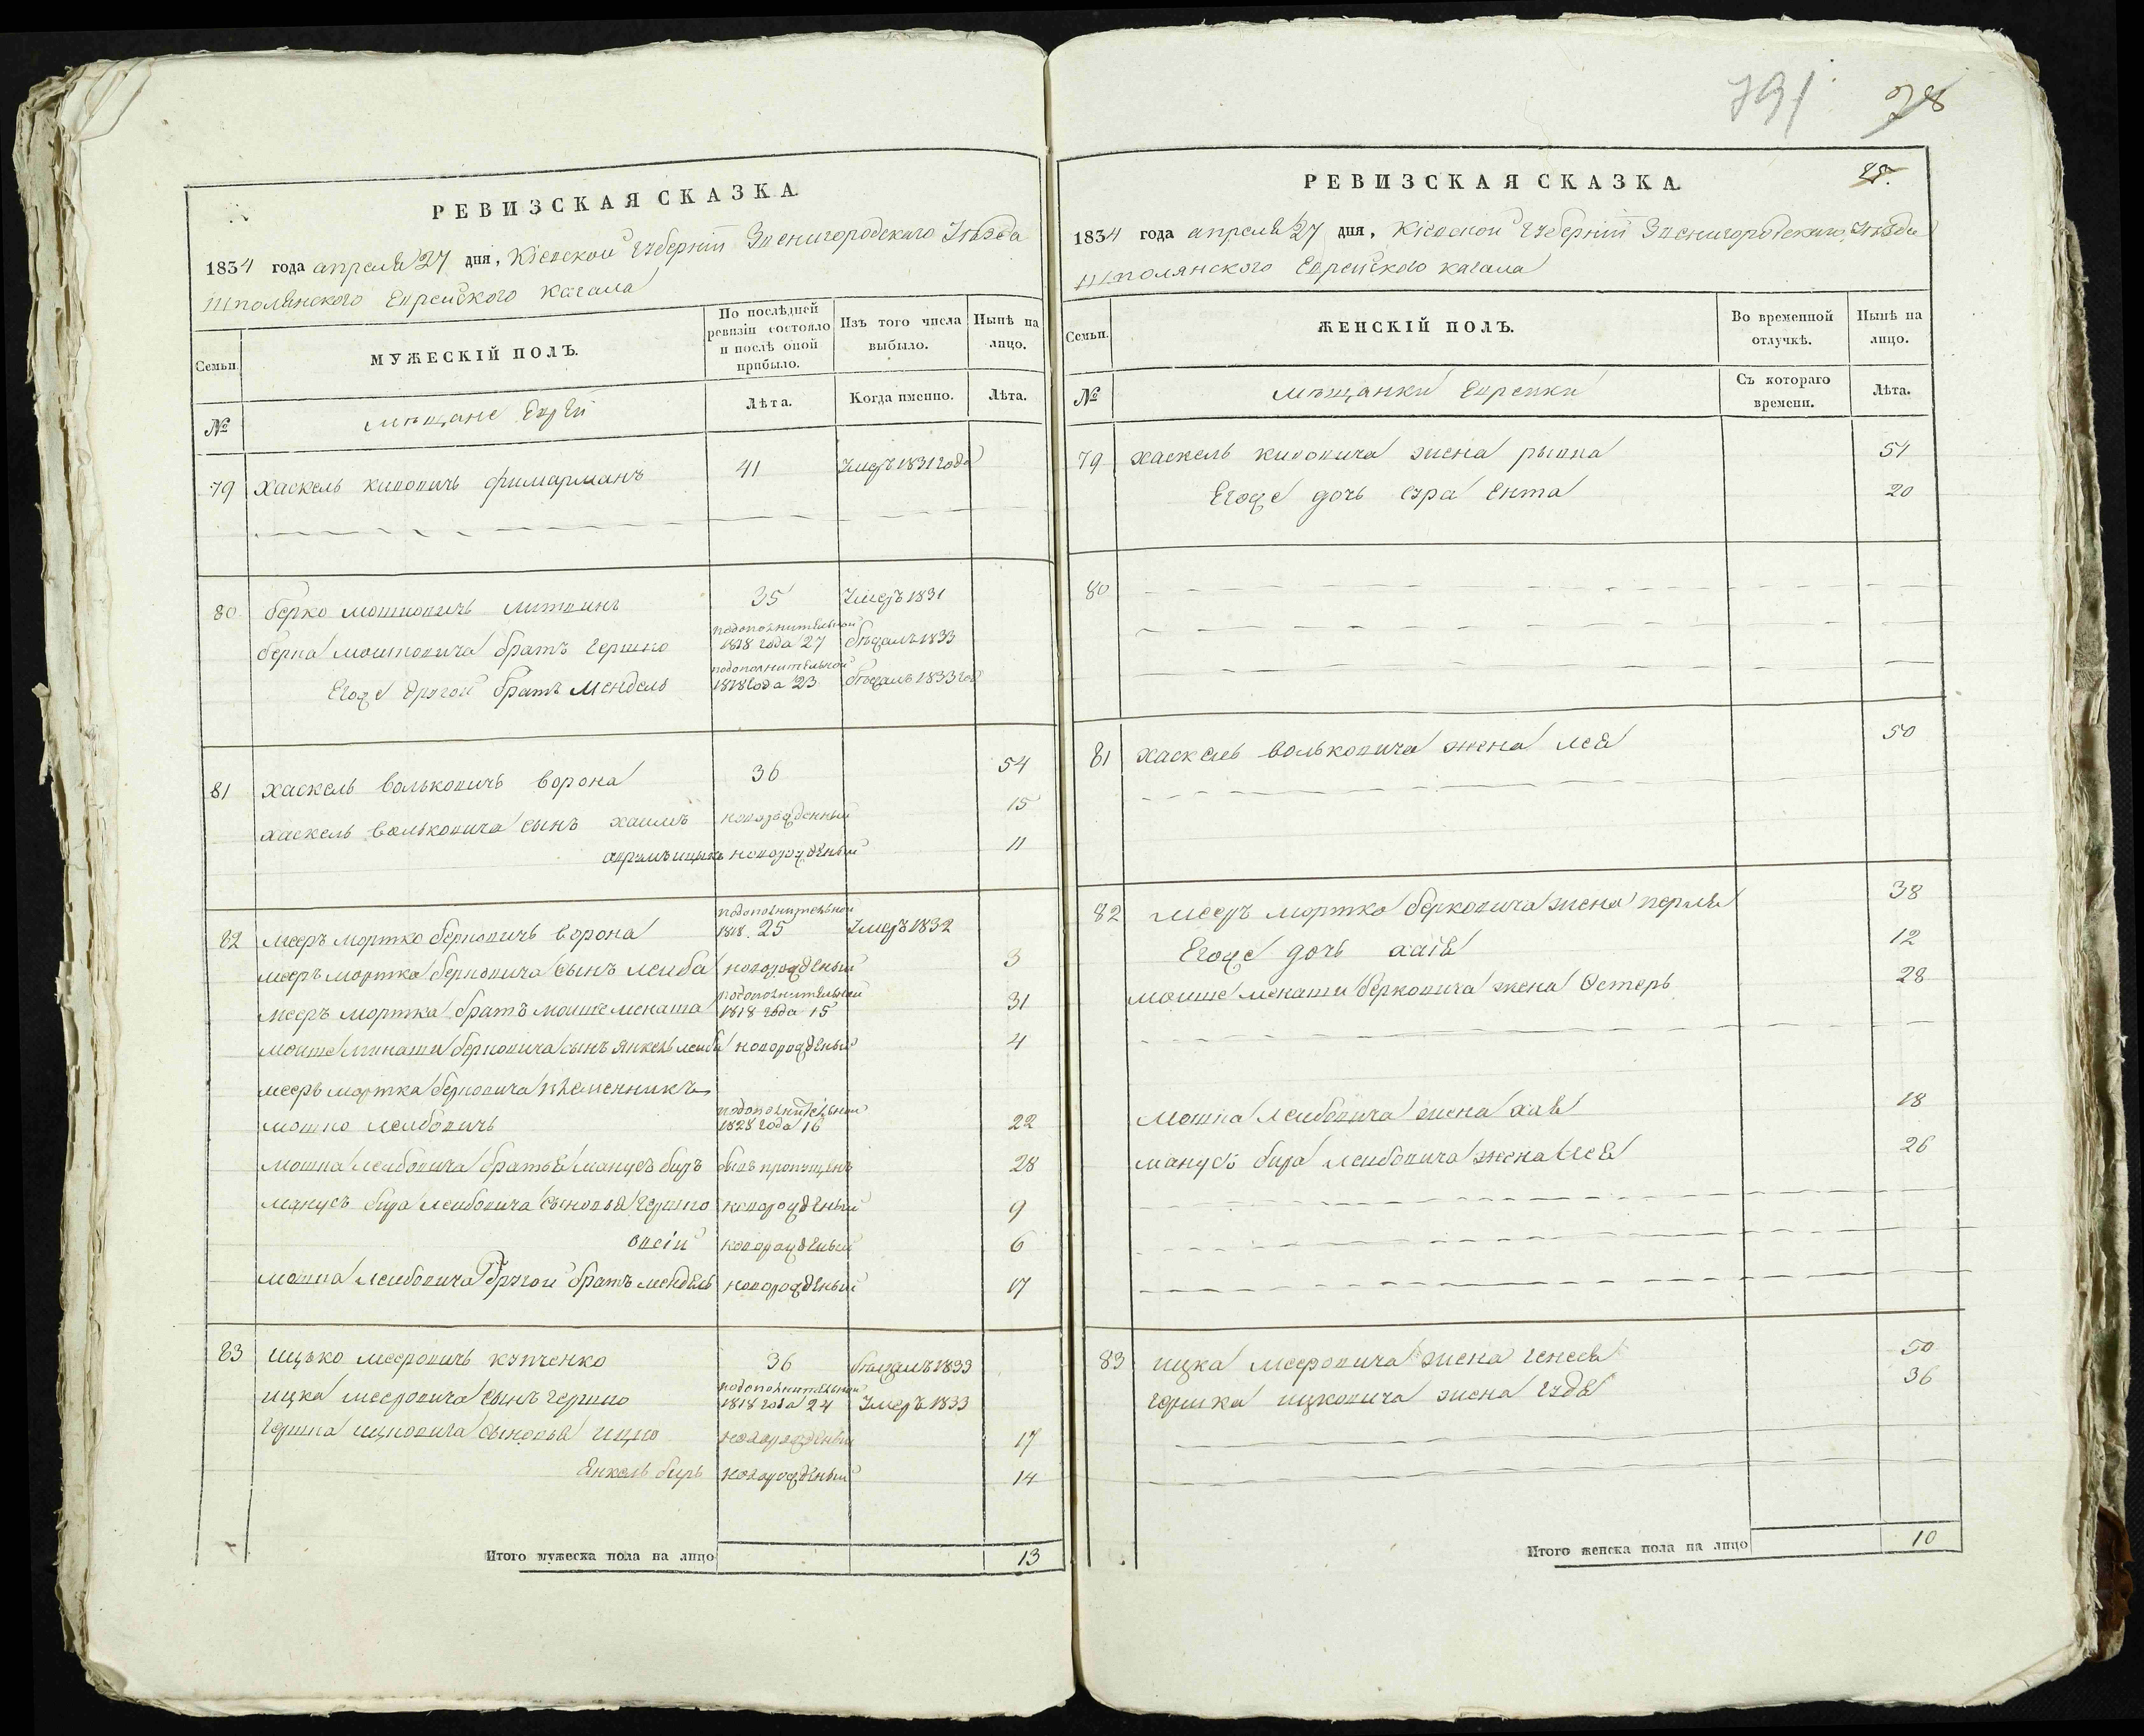 РЕВИЗСКАЯ СКАЗКА
1834 года апреля 27 дня, Кіевской Губерніи Звенигородского Уѣзда
Шполянского Еврейского Кагала
Семьи.
МУЖЕСКІЙ ПОЛЪ.
По послѣдней ревизіи состояло и послѣ оной прибыло.
Изъ того числа выбыло.
Нынѣ на лицо.
№
мѣщане Евреи
Лѣта.
Когда именно.
Лѣта.
79 хаскель кивовичь фишарманъ 41 Умеръ 1831 года
80 берко мошковичь литвинъ 35 Умеръ 1831
подополнительной
берка мошковича братъ гершко 1818 года 27 бѣжалъ 1833
подополнительной
Егоже другой братъ мендель 1818 года 23 бѣжалъ 1833 год
81 хаскель вольковичь ворона 36 54
хаскель вольковича сынъ хаимъ новорожденный 15
аврамъ ицыкъ новорожденый 11
подополнительной
82 мееръ мортко берковичь ворона 1818. 25 Умеръ 1832
мееръ мортка берковича сынъ лейба новорожденый 3
подополнительной
мееръ мортка братъ мойше менаша 1818 года 15 31
мойше менаши берковича сынъ янкель лейба новорожденый 4
мееръ мортка берковича племенникъ
подополнительной
мошко лейбовичь 1828 года 16 22
мошка лейбовича братья манусъ биръ былъ пропущенъ 28
манусъ бира лейбовича сыновья гершко новорожденый 9
овсій новорожденый 6
мошка лейбовича другой братъ мендель новорожденый 17
83 ицько мееровичь купченко 36 бѣжалъ 1833
подополнительной
ицка мееровича сынъ гершко 1818 года 24 Умеръ 1833
гершка ицковича сыновья ицко новорожденый 17
Янкель биръ новорожденый 14
Итого мужеска пола на лицо 13
791 78
РЕВИЗСКАЯ СКАЗКА
1834 года апреля 27 дня, Кіевской Губерніи Звенигородского Уѣзда
Шполянского Еврейского кагала
Семьи.
ЖЕНСКІЙ ПОЛЪ.
Во временной отлучкѣ.
Нынѣ на лицо.
№
мѣщанки Еврейки
Съ котораго времени.
Лѣта.
79 хаскель кивовича жена рывка 51
Егоже дочь сура Ента 20
80
81 хаскель вольковича жена лея 50
82 мееръ мортко берковича жена перля 38
Егоже дочь хаія 12
мойше менаши берковича жена Естерь 28
мошка лейбовича жена хая 18
манусъ бира лейбовича жена лея 26
83 ицка мееровича жена генеся 50
гершка ицковича жена гудя 36
Итого женска пола на лицо 10